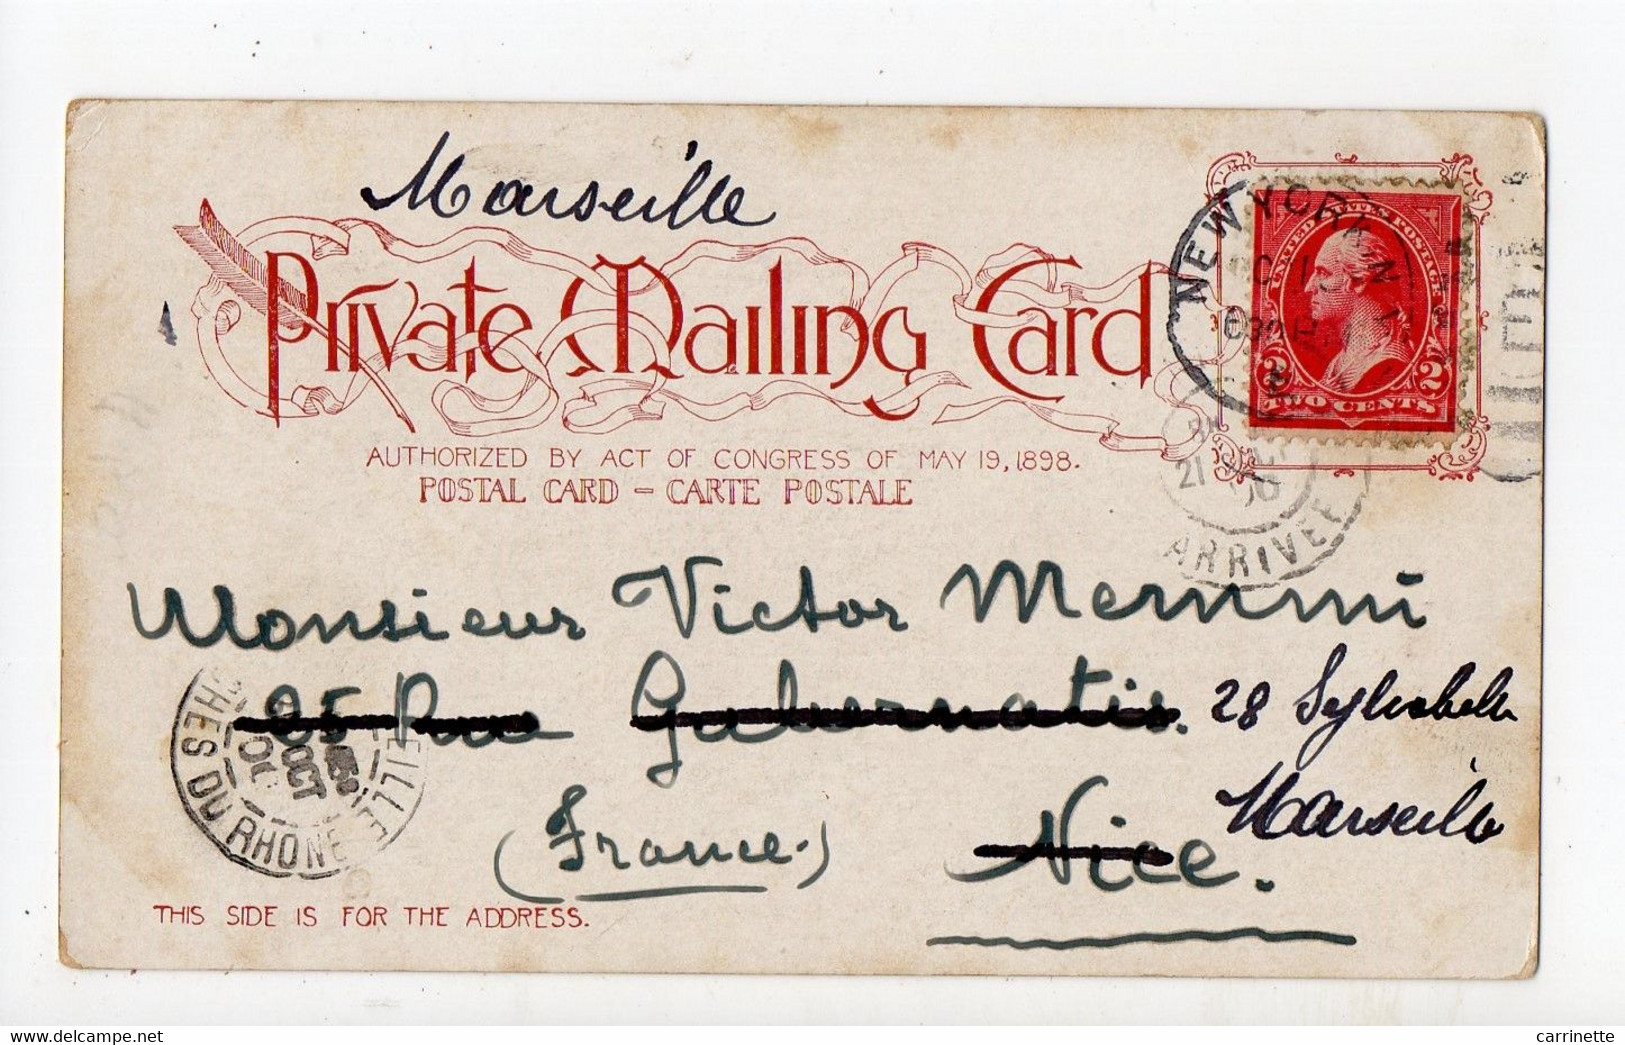 Marseille
Private Mailing Card
AUTHORIZED BY ACT OF CONGRESS OF MAY 19, 1898.
POSTAL CARD – CARTE POSTALE
NEW YORK N.Y.
630 PM
UNITED STATES POSTAGE
2 2
TWO CENTS
21 OCT
00
ARRIVEE
Monsieur Victor
25 Rue Gubernatis. 28
Marseille
(France.) Nice.
OCT
CHES DU RHONE
THIS SIDE IS FOR THE ADDRESS.
carrinette